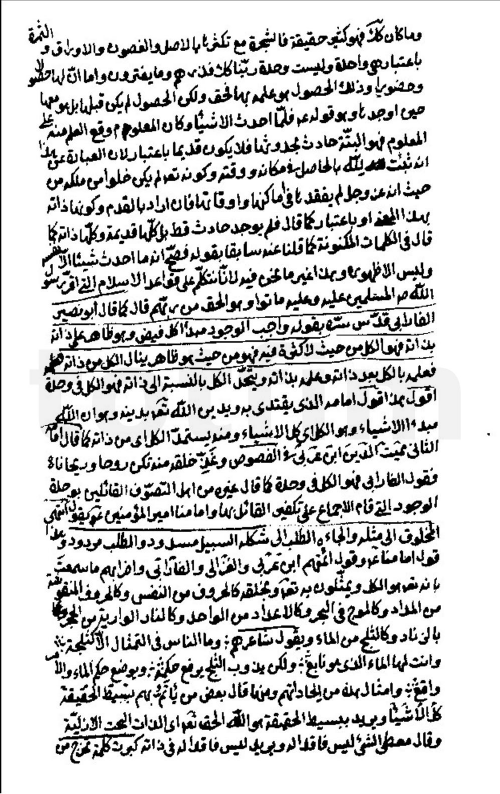 وما كان كلاّ فهو كثير حقيقة فالشجرة مع تكثرها بالاصل والغصون والاوراق و الثمرة
باعتبار هي واحدة وليست وحدة ربنا كل قدرهم وما يفترون واما ان لها حصولا
وحضورا وذلك الحصول هو علمه بها فحق ولكن الحصول لم يكن قبلها بل هو معها
حين اوجدها وهو قوله ع فلما احدث الاشيآء وكان المعلوم وقع العلم منه على
المعلوم فهو البتّة حادث بحدوثها فلا يكون قديما باعتبار لان العبارة عن هذا
انه ثبت لله بالحاصل في مكانه ووقته وكونه تعه لم يكن خلوا من ملكه من
حيث انه عز وجل لم يفقدها في اماكنها واوقاتها فان اراد بالقدم وكونها ذاته
بهذا او باعتبار كما قال فلم يوجد حادث قط بل كلها قديمة وكلها ذاته كما
قال في الكلمات المكنونة كما قلنا عنه سابقا بقوله فصح انه ما احدث شيئا الا نفسه
وليس الا ظهوره وهذا غير ما نحن فيه لانا نتكلم على قواعد الاسلام التي اقر رسول
الله ص المسلمين عليه وعليه ماتوا وهو الحق من ربهم ثم قال كما قال ابو نصير
الفارابي قدّس سرّه بقوله واجب الوجود مبدأ كل فيض وهو ظاهر على ذاته
بذاته فهو الكل من حيث لا كثرة فيه فهو من حيث هو ظاهر ينال الكل من ذاته
فعلمه بالكل بعد ذاته وعلمه بذاته ويتحد الكل بالنسبة الى ذاته فهو الكل في وحدة
اقول هذا قول امامه الذي يقتدى به ويدين الله تعه بدينه وهو ان الله
مبدء الاشياء وهو الكل اي كل الاشياء ومنه يستمد الكل اي من ذاته كما قال امامه
الثاني مميت الدين ابن عربي في الفصوص وغذّ خلقه منه تكن روحا وريحانا
فقول الفارابي فهو الكل في وحدة كما قال غيره من اهل التصوف القائلين بوحدة
الوجود التي قام الاجماع على تكفير القائل بها واما منا امير المؤمنين ع يقول انتهى
المخلوق الى مثله والجاءه الطلب الى شكله السبيل مسدود والطلب مردود وهذا
قول امامنا ع وقول ائمتهم ابن عربي والغزالي والفارابي واضرابهم ما سمعت
بانه تعه هو الكل ويمثلون به تعه وبخلقه كالحروف من النفس وكالحروف المنقوشة
من المداد وكالموج في البحر وكالاعداد من الواحد وكالنار الوارية من الحجر بالحكّ
بالزناد وكالثلج من الماء ويقول شاعرهم وما الناس في التمثال الا كثلجة
وانت لها الماء الذي هو نابع ولكن بذوب الثلج يرفع حكمه ويوضع حكم الماء والامر
واقع وامثال هذه من الحاداتهم ومنها قال بعض من ياتم بهم بسيط الحقيقة
كل الاشيآء ويريد ببسيط الحقيقة هو الله الحق تعه اي الذات البحت الازلية
وقال معطي الشئ ليس فاقدا له ويريد ليس فاقدا له في ذاته كبرت كلمة تخرج من